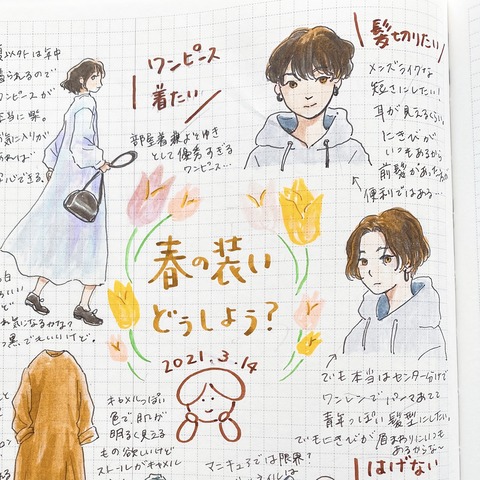 以外は年中
着られるので
ワンピースが
本当に楽。
お気に入りが
あれば
安心できる。
ワンピース
着たい
部屋着兼よそゆき
として優秀すぎる
ワンピース…
髪切りたい
メンズライクな
短さにしたい!
耳が見えるくらい
にきびが
いつもあるから
前髪があった方が
便利ではある…
春の装い
どうしよう?
2021.3.14
でも本当はセンター分けで
ワンレンでパーマあてて
青年っぽい髪型にしたい。
でもにきびが眉まわりにいつも
あるからな〜
白
いい
ど。
気になるかな?
黒でもいいけど。
キャメルっぽい
色で、肌が
明るく見える
もの欲しいけど
ストールがキャメル
マニキュアでは限界?
はげない